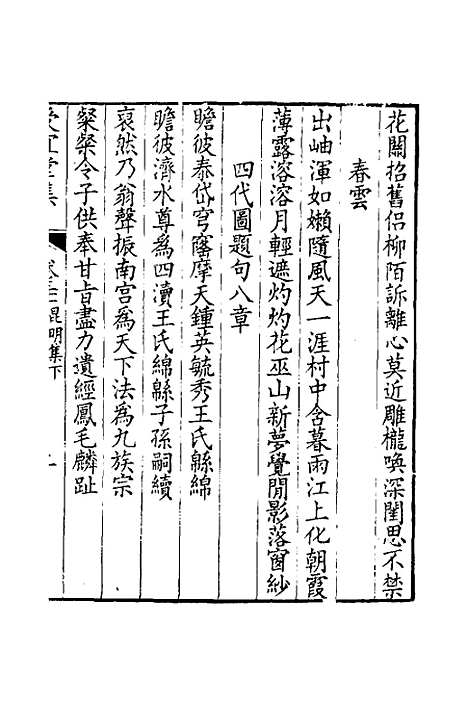 花關招舊侶柳陌訴離心莫近雕櫳喚深閨思不禁
春雲
出岫渾如嬾隨風天一涯村中含暮雨江上化朝霞
薄露溶溶月輕遮灼灼花巫山新夢覺閒影落窗紗
四代圖題句八章
瞻彼泰岱穹窿摩天鍾英毓秀王氏緜綿
瞻彼濟水尊為四瀆王氏綿緜子孫嗣續
裒然乃翁聲振南宫為天下法為九族宗
粲粲令子供奉甘旨盡力遺經鳳毛麟趾
堂集
昆明集下